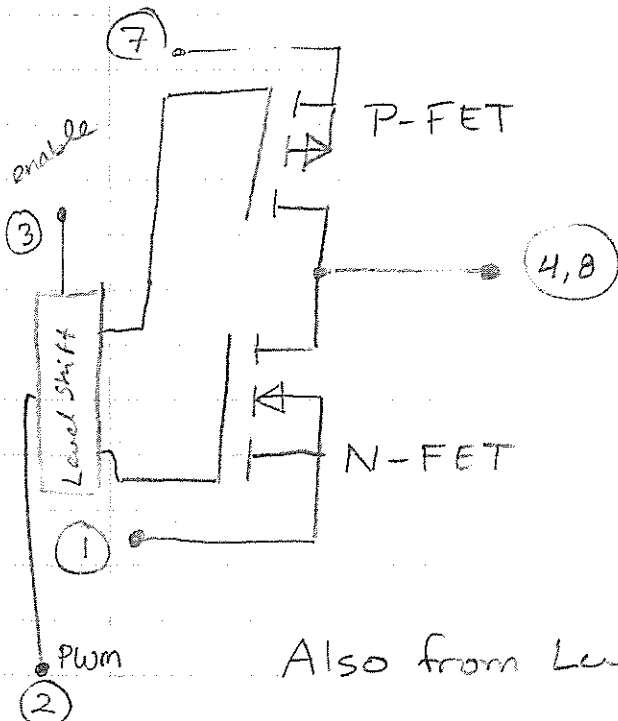 7
P-FET
enable
3
4,8
Level Shift
N-FET
1
PWM
Also from
2